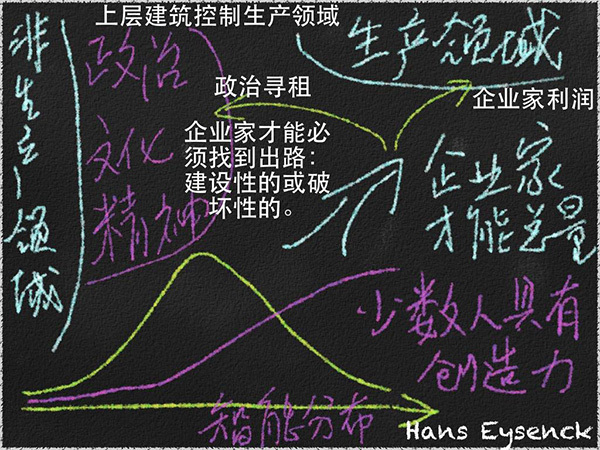 上层建筑控制生产领域
非生产领域
政治
文化
精神
生产领域
政治寻租
企业家利润
企业家才能必
须找到出路：
建设性的或破
坏性的。
企业家
才能总量
少数人具有
创造力
智能分布
Hans Eysenck